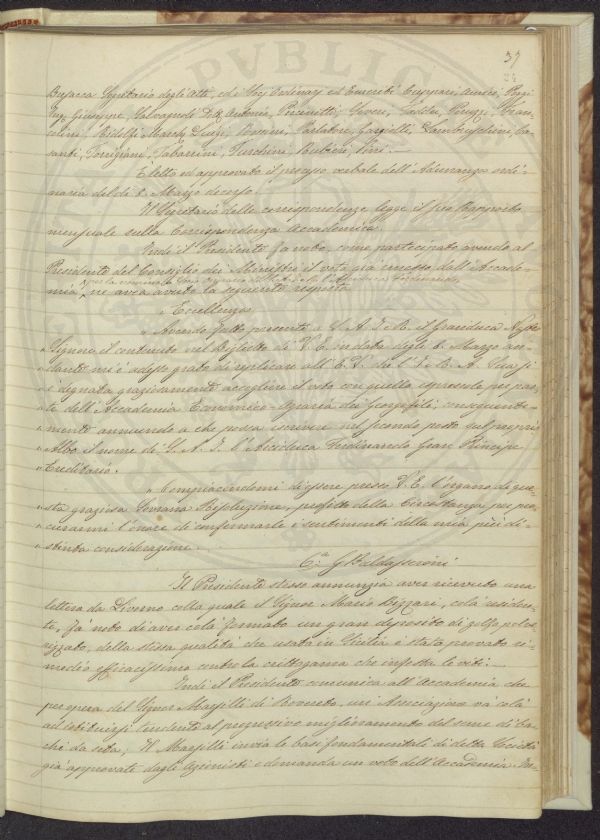 37
24
Busacca Segretario degli Atti, ed i Sigg. Ordinarj ed Emeriti Cuppari, Amici, Poggi
Ingr. Giuseppe, Salvagnoli Dott. Antonio, Vaddi, Peruzzi, Fran-
Ridolfi March. Luigi, Parlatore, Gazzeri, Lambruschini,
Torrigiani, Tabarrini, Turchini, Rubieri, Vini.
È letto ed approvato il processo verbale dell'Adunanza ordi-
naria del dì 6 Marzo decorso.
Il Segretario delle corrispondenze legge il suo Rapporto
mensuale sulla Corrispondenza Accademica.
Indi il Presidente fa noto, come partecipato avendo al
Presidente del Consiglio dei Ministri il voto già emesso dall'Accade-
mia, ne avea avuta la seguente risposta
" Eccellenza
" Avendo fatto presente a S. A. I. e R. il Granduca Nostro
" Signore il contenuto nel Biglietto di V. E. in data degli 8. Marzo an-
" dante mi è adesso grato di replicare all'E. V. che l'I. e R. A. Sua si
" è degnata graziosamente accogliere il voto con quello espressole per par-
" te dell'Accademia Economico-Agraria dei Georgofili, conseguente-
" mente annuendo a che possa iscrivere nel secondo posto sul proprio
" Albo il nome di S. A. I. l'Arciduca Ferdinando Gran Principe
" Ereditario.
" Compiacendomi di essere presso V. E. l'organo di que-
" sta graziosa Sovrana Resoluzione, profitto della circostanza per pro-
" curarmi l'onore di confermarle i sentimenti della mia più di-
" stinta considerazione
G. Baldasseroni
Il Presidente stesso annunzia aver ricevuto una
lettera da Livorno colla quale il Signor Mario Bizzari, colà residen-
te, fa noto di aver colà formato un gran deposito di zolfo polve-
rizzato, della stessa qualità che usata in Sicilia è stata provato ri-
medio efficacissimo contro la crittogama che infesta le viti.
Indi il Presidente comunica all'Accademia che
per opera del Signor Marsilli di Rovereto, un Associazione va colà
ad istituirsi tendente al progressivo miglioramento del seme di ba-
chi da seta; Il Marsilli invia le basi fondamentali di detta Società
già approvate dagli Azionisti e domanda un voto dell'Accademia.